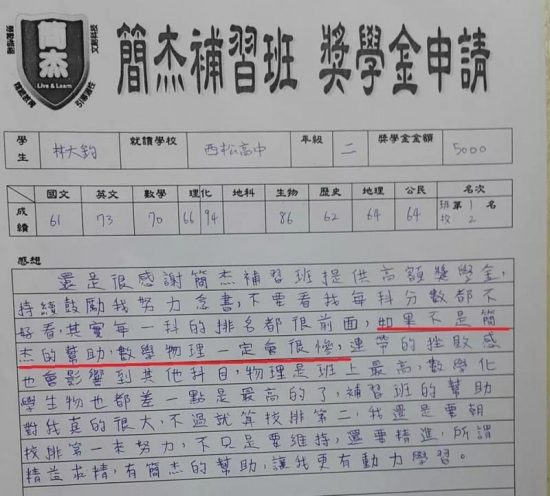 簡杰
Live & Learn
簡杰補習班 獎學金申請
學生 林大鈞 就讀學校 西松高中 年級 二 獎學金金額 5000
國文 英文 數學 理化 地科 生物 歷史 地理 公民 名次
成績 61 73 70 66 94 86 62 64 64 班第1名 校2
感想
還是很感謝簡杰補習班提供高額獎學金,
持續鼓勵我努力念書,不要看我每科分數都不
好看,其實每一科的排名都很前面,如果不是簡
杰的幫助,數學物理一定會很慘,連帶的挫敗感
也會影響到其他科目,物理是班上最高,數學化
學生物也都差一點是最高的了,補習班的幫助
對我真的很大,不過就算校排第二,我還是要朝
校排第一來努力,不只是要維持,還要精進,所謂
精益求精,有簡杰的幫助,讓我更有動力學習。